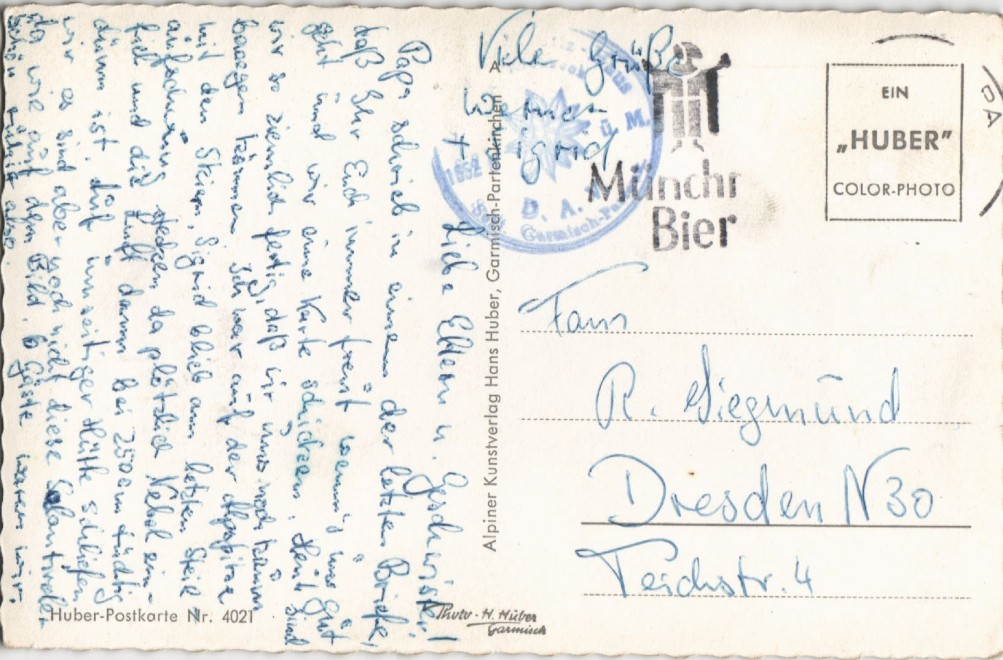 Liebe Eltern u. Geschwister!
Papa schrieb in einem der letzten Briefe,
daß Ihr Euch immer freut wenn's uns gut
geht und wir eine Karte schicken. Heut sind
wir so ziemlich fertig, daß wir uns noch kaum
bewegen können. Ich war auf der Alpspitze
mit den Skiern, Sigrid blieb am letzten Steil
da plötzlich Nebel ein-
fiel und die Luft dann bei 2500 m tüchtig
dünn ist. Auf umseitiger Hütte schliefen
wir es sind aber noch nicht diese
da wie auf dem Bild. 6 Gäste waren wir
Viele Grüße
Werner
+ Sigrid
1652 ü. M.
D. A.
Garmisch-Pa
Münchn
Bier
EIN
„HUBER"
COLOR-PHOTO
Alpiner Kunstverlag Hans Huber, Garmisch-Partenkirchen
Fam
R. Siegmund
Dresden N 30
Teichstr. 4
Huber-Postkarte Nr. 4021
Photo - H. Huber
Garmisch